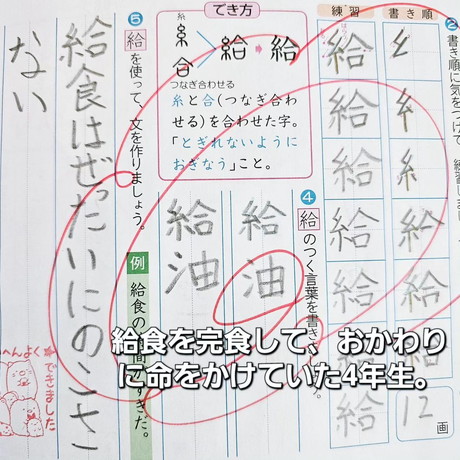 書き順
練習
書き順に気をつけて
給
給
給
給
給
給
12画
でき方
糸
合
給
給
つなぎ合わせる
糸と合(つなぎ合わ
せる)を合わせた字。
「とぎれないように
おぎなう」こと。
❹給のつく言葉を書き
給油
給油
❺給を使って、文を作りましょう。
例 給食の
すきだ。
給食はぜったいにのこさ
ない
へんよく
できました
給食を完食して、おかわり
に命をかけていた4年生。